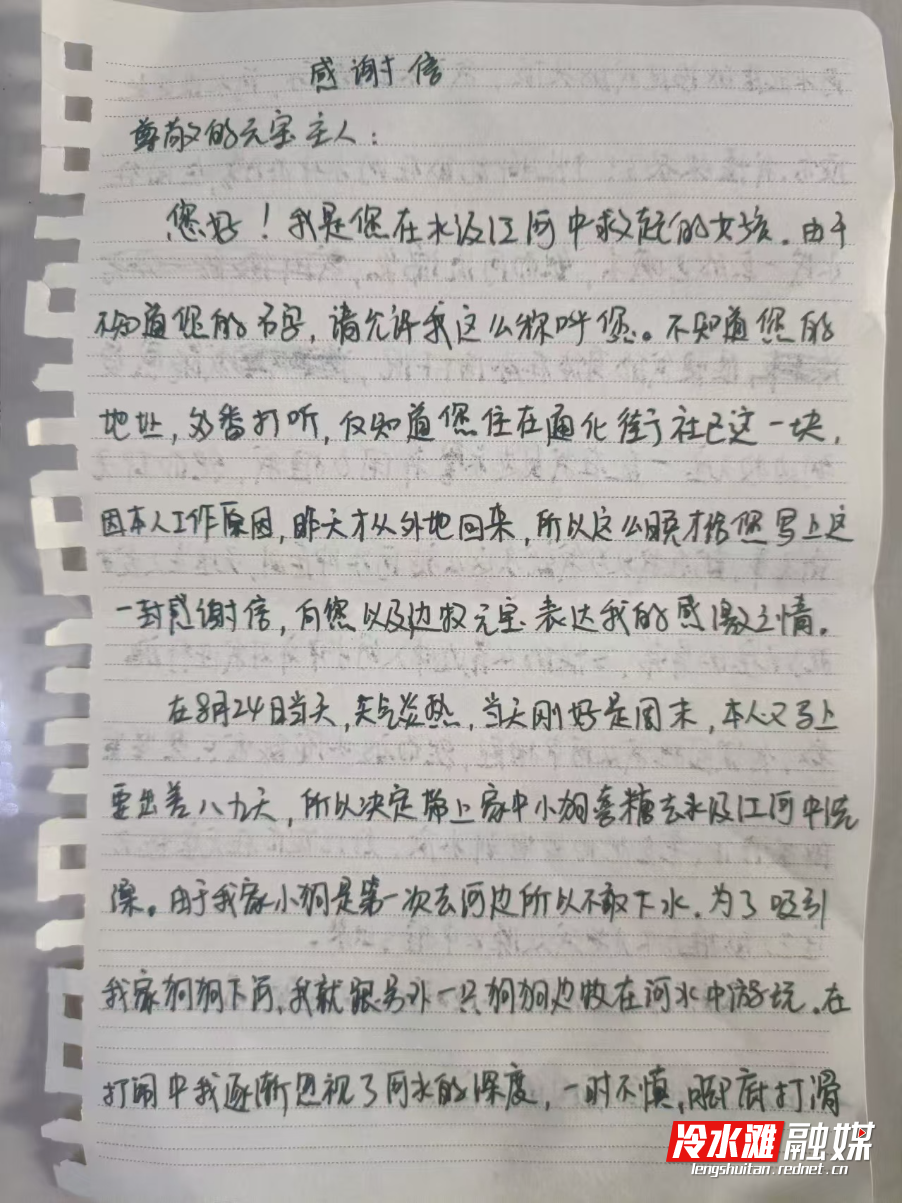 感谢信
尊敬的元宝主人：
您好！我是您在水汲江河中救起的女孩。由于
不知道您的名字，请允许我这么称呼您。不知道您的
地址，多番打听，仅知道您住在通化街社已这一块，
因本人工作原因，昨天才从外地回来，所以这么晚才给您写上这
一封感谢信，向您以及边牧元宝表达我的感激之情。
在8月24日当天，天气炎热，当天刚好是周末，本人又马上
要出差八九天，所以决定带上家中小狗喜糖去水汲江河中洗
澡。由于我家小狗是第一次去河边所以不敢下水。为了吸引
我家狗狗下河，我就跟另外一只狗狗边牧在河水中游玩。在
打闹中我逐渐忽视了河水的深度，一时不慎，脚底打滑
冷水滩融媒
lengshuitan.rednet.cn